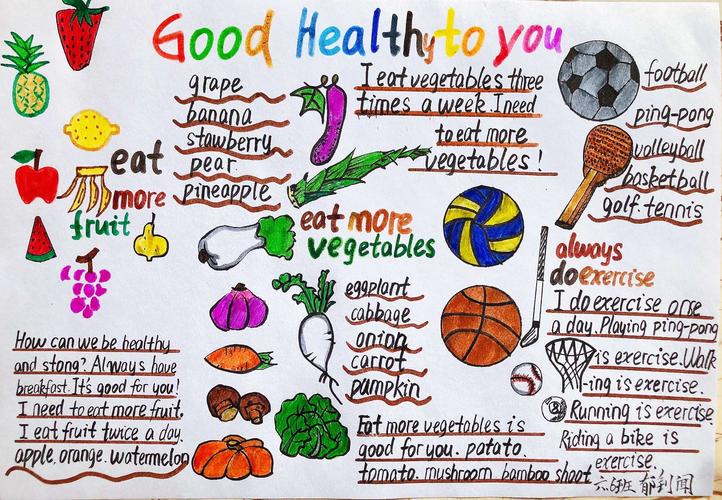 Good Healthy to you
grape
banana
stawberry
pear
pineapple
eat
more
fruit
I eat vegetables three
times a week. I need
to eat more
vegetables!
football
ping-pong
volleyball
basketball
golf. tennis
eat more
vegetables
eggplant
cabbage
onion
carrot
pumpkin
always
do exercise
I do exercise orse
a day. Playing ping-pong
is exercise. Walk
-ing is exercise.
Running is exercise.
Riding a bike is
exercise.
How can we be healthy
and stong? Always have
breakfast. It's good for you!
I need to eat more fruit.
I eat fruit twice a day.
apple. orange. watermelon
Eat more vegetables is
good for you. patato.
tomato. mushroom bamboo shoot